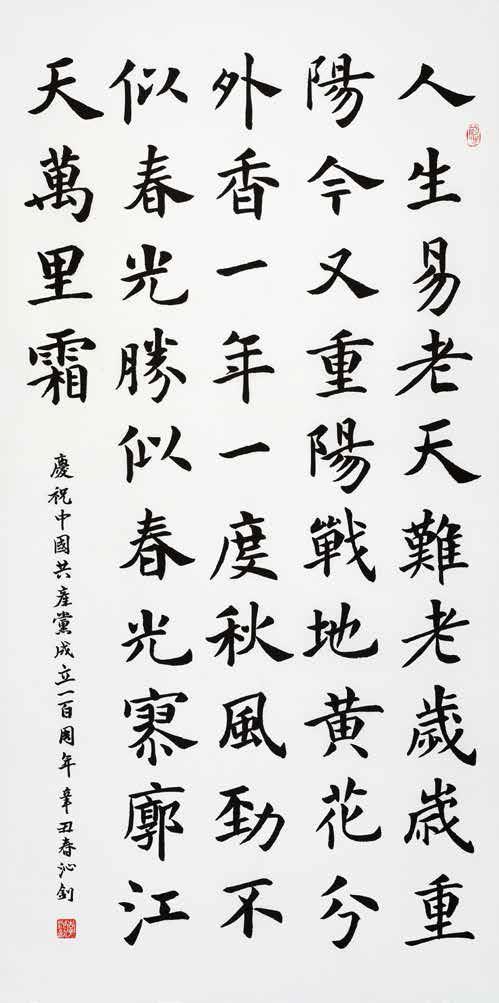 人生易老天難老歲歲重
陽今又重陽戰地黃花分
外香一年一度秋風勁不
似春光勝似春光寥廓江
天萬里霜
慶祝中國共產黨成立一百周年 辛丑春沁釗